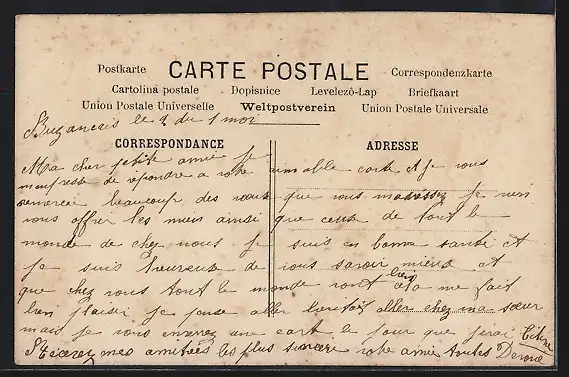 Postkarte CARTE POSTALE Correspondenzkarte
Cartolina postale Dopisnice Levelezö-Lap Briefkaart
Union Postale Universelle Weltpostverein Union Postale Universale
Buzancais le 2 du 1 moi
CORRESPONDANCE ADRESSE
Ma cher petite amie je
m'anpresse de répondre a votre aimable carte et je vous
remercie beaucoup des veux que vous je vien
vous offrir les mien ainsi que ceux de tout le
monde de chez nous. je suis en bonne santé et
je suis heureuse de vous savoir mieux et
que chez vous tout le monde vont bien cela me fait
bien plaisir je pense aller aller chez ma sœur
mais je vous enverez une cart le jour que jirai
Recevez mes amitiées les plus sincère votre amie toutes